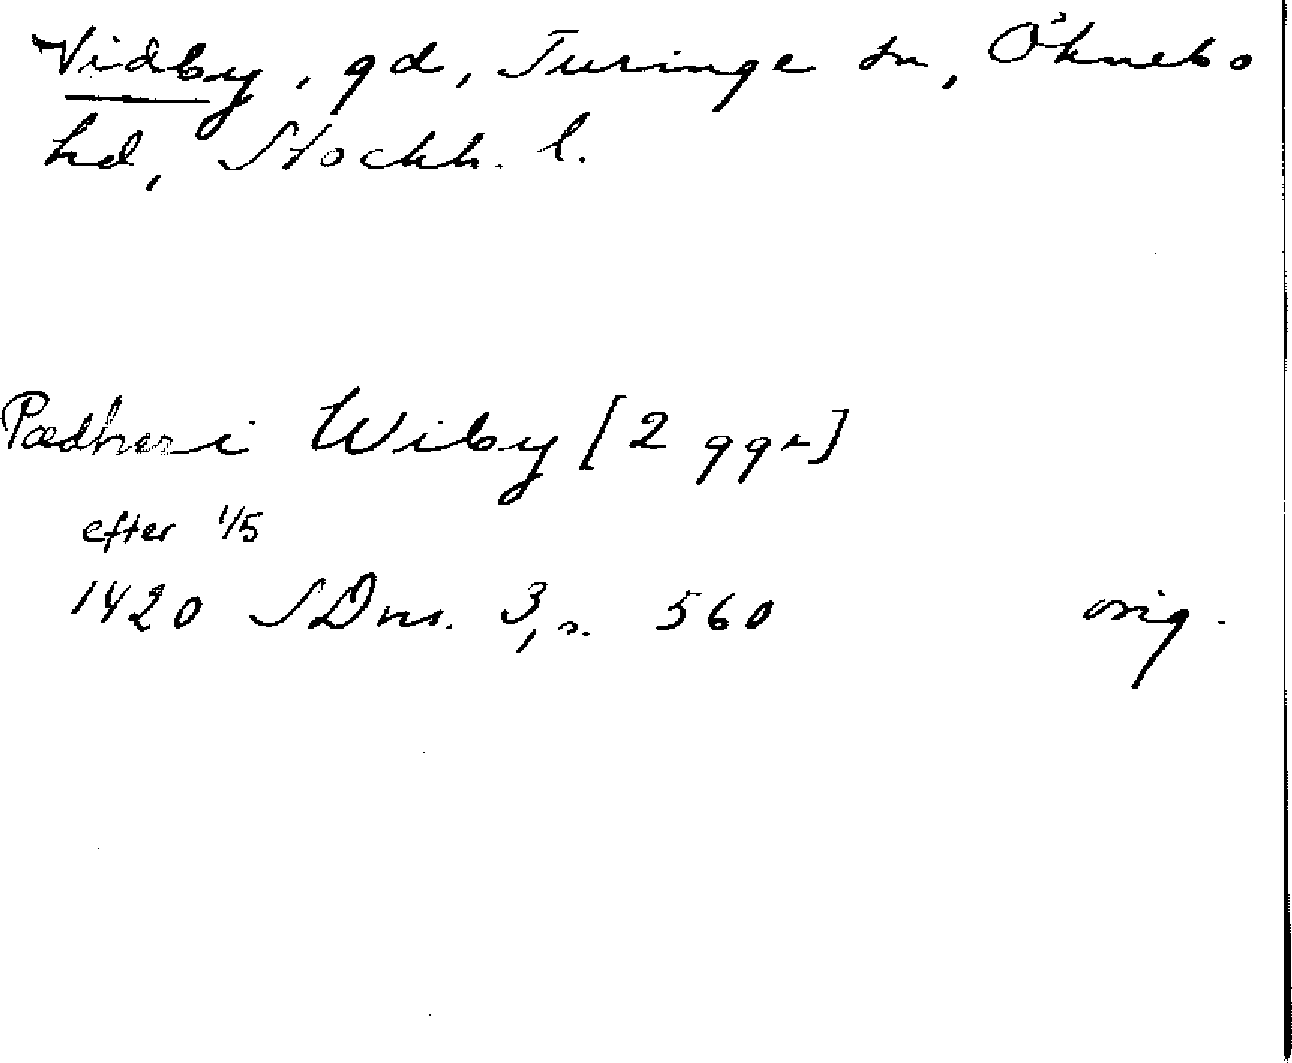 Vidby, gd, Turinge sn, Öknebo
hd, Stockh. l.
Pædher i Wiby [2 ggr]
efter 1/5
1420 SDns. 3, s. 560 orig.